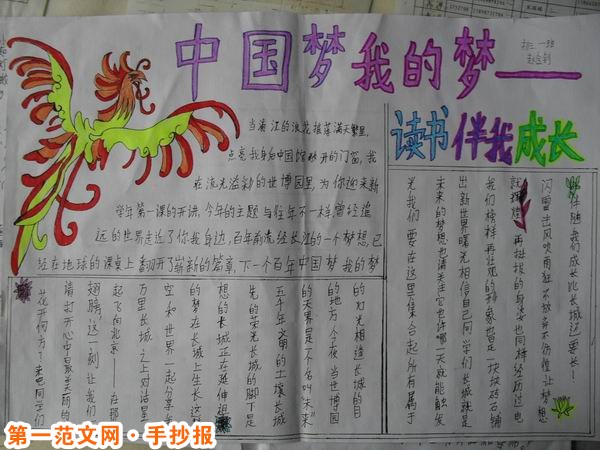 中国梦我的梦——
读书伴我成长
当浦江的浪花摇落满天繁星,
点亮我身后中国馆敞开的门窗,我
在流光溢彩的世博园里,为你迎来新
学年第一课的开讲,今年的主题与往年不一样,曾经遥
远的世界走近了你我身边,百年前流经长江的一个梦想,已
经在地球的课桌上翻开了崭新的篇章,下一个百年中国梦我的梦
花开何方?来吧同学们
请打开心中最美丽的
翅膀,这一刻让我们
起飞向北京——在那
万里长城之上对话星
空和世界一起分享
的梦在长城上生长这
想的长城正在延伸祖
先的荣光长城的脚下是
五千年文明的土壤长城
的天界是不是名叫"未来"
的地方今夜当世博园
的灯光相连长城的目
光我们要在这里集合起所有属于
未来的梦想也请关注它也许哪一天就能触发
出新世界曙光相信自己同学们长城就是
我们榜样再壮观的形象也是一块块砖石铺
就辉煌再挺拔的身姿也同样经历过电
闪雷击风吹雨狂不放弃不让梦想
伴随我们成长比长城还要长—
第一范文网·手抄报